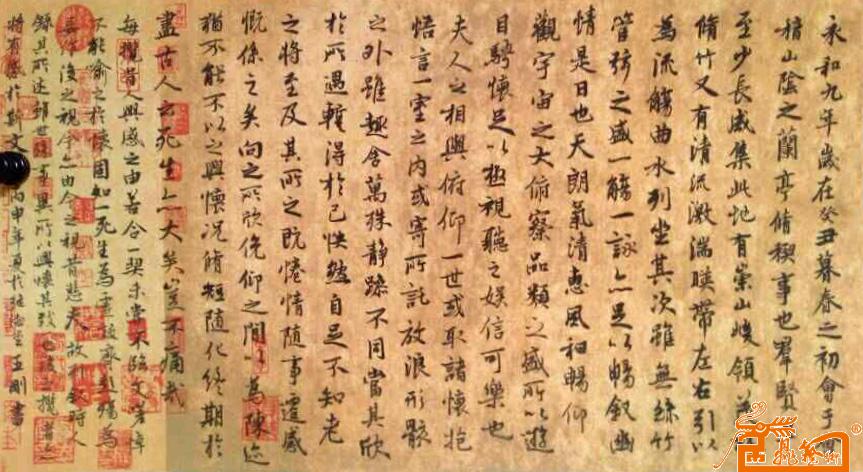 永和九年歲在癸丑暮春之初會于
稽山陰之蘭亭脩稧事也羣賢
至少長咸集此地有崇山峻領
脩竹又有清流激湍暎帶左右引以
為流觴曲水列坐其次雖無絲竹
管弦之盛一觴一詠亦足以暢敘幽
情是日也天朗氣清惠風和暢仰
觀宇宙之大俯察品類之盛所以遊
目騁懷足以極視聽之娛信可樂也
夫人之相與俯仰一世或取諸懷抱
悟言一室之內或寄所託放浪形骸
之外雖趣舍萬殊靜躁不同當其欣
於所遇蹔得於己怏然自足不知老
之將至及其所之既惓情隨事遷感
慨係之矣向之所欣俛仰之間以為陳迹
猶不能不以之興懷況脩短隨化終期於
盡古人云死生亦大矣豈不痛哉
每攬昔人興感之由若合一契未嘗不臨文嗟悼
不能喻之於懷固知一死生為虛誕齊彭殤為
妄作後之視今亦由今之視昔悲夫故列敘時人
錄其所述雖世殊事異所以興懷其致一也後之攬者亦
將有感於斯文丙申年夏於王剛書